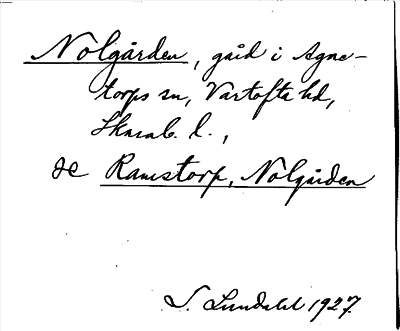 Nolgården, gård i Agne-
torps sn, Vartofta hd,
Skarab. l.,
se Ramstorp, Nolgården
S. Lundahl 1927